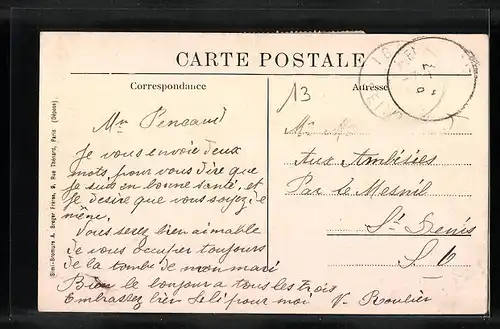 CARTE POSTALE
Correspondance
Adresse
13
Mr Pencaud
Je vous envoie deux
mots, pour vous dire que
je suis en bonne santé, et
je désire que vous soyez de
même.
Vous serez bien aimable
de vous occuper toujours
de la tombe de mon mari
Bien le bonjour a tous les trois
Embrassez bien pour moi V. Roulier
Aux
Par le Mesnil
St Denis
S. O
Simi-Bromure A. Breger Frères, 9, Rue Thénard, Paris (Déposé).